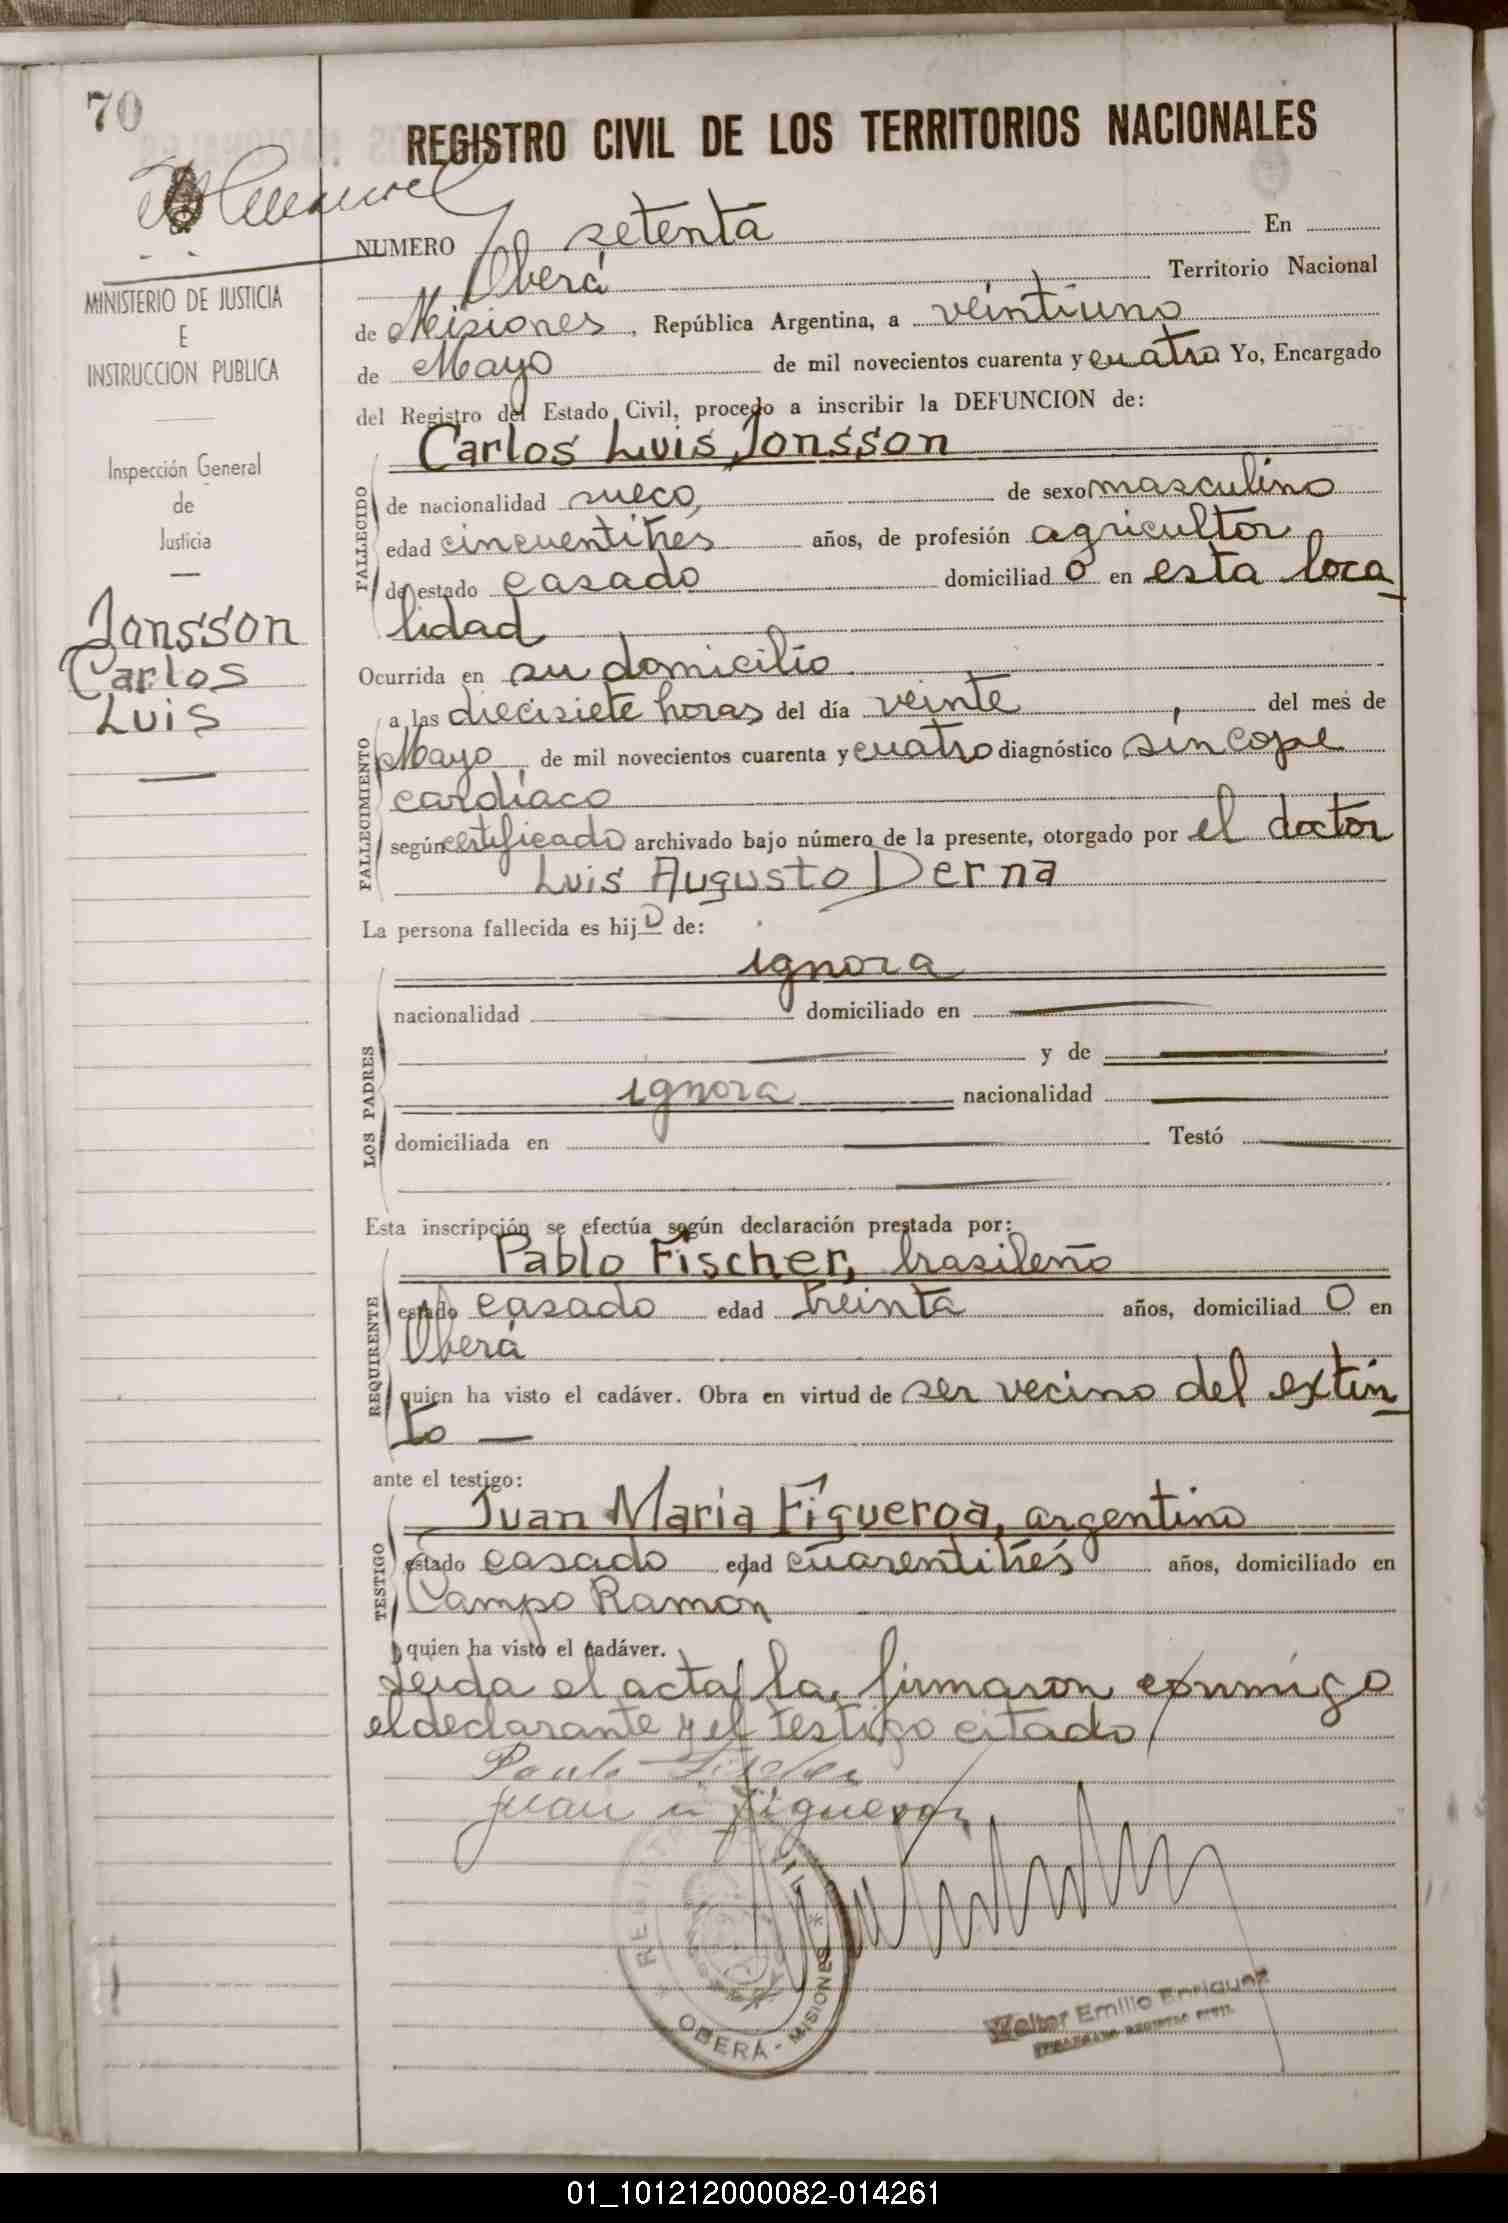 70
REGISTRO CIVIL DE LOS TERRITORIOS NACIONALES
NUMERO setenta En
Oberá Territorio Nacional
de Misiones, República Argentina, a veintiuno
de Mayo de mil novecientos cuarenta y cuatro Yo, Encargado
del Registro del Estado Civil, procedo a inscribir la DEFUNCION de:
Carlos Luis Jonsson
de nacionalidad sueco, de sexo masculino
edad cincuentitrés años, de profesión agricultor
de estado casado domiciliad o en esta loca
lidad
Ocurrida en su domicilio
a las diecisiete horas del día veinte, del mes de
Mayo, de mil novecientos cuarenta y cuatro diagnóstico síncope
cardíaco
según certificado archivado bajo número de la presente, otorgado por el doctor
Luis Augusto Derna
La persona fallecida es hij o de:
ignora
nacionalidad domiciliado en
y de
ignora nacionalidad
domiciliada en Testó
Esta inscripción se efectúa según declaración prestada por:
Pablo Fischer, brasileño
estado casado edad treinta años, domiciliad o en
Oberá
quien ha visto el cadáver. Obra en virtud de ser vecino del extin
to —
ante el testigo:
Juan Maria Figueroa, argentino
estado casado edad cuarentitrés años, domiciliado en
Campo Ramón
quien ha visto el cadáver.
Leida el acta, la firmaron conmigo
el declarante y el testigo citado
Paulo Fischer
Juan M Figueroa
MINISTERIO DE JUSTICIA
E
INSTRUCCION PUBLICA
Inspección General
de
Justicia
Jonsson
Carlos
Luis
FALLECIDO
FALLECIMIENTO
LOS PADRES
REQUIRENTE
TESTIGO
REGISTRO CIVIL
OBERÁ - MISIONES
Walter Emilio Enriquez
ENCARGADO REGISTRO CIVIL
01_101212000082-014261